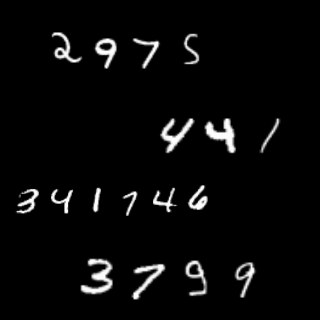 2975
441
341746
3799